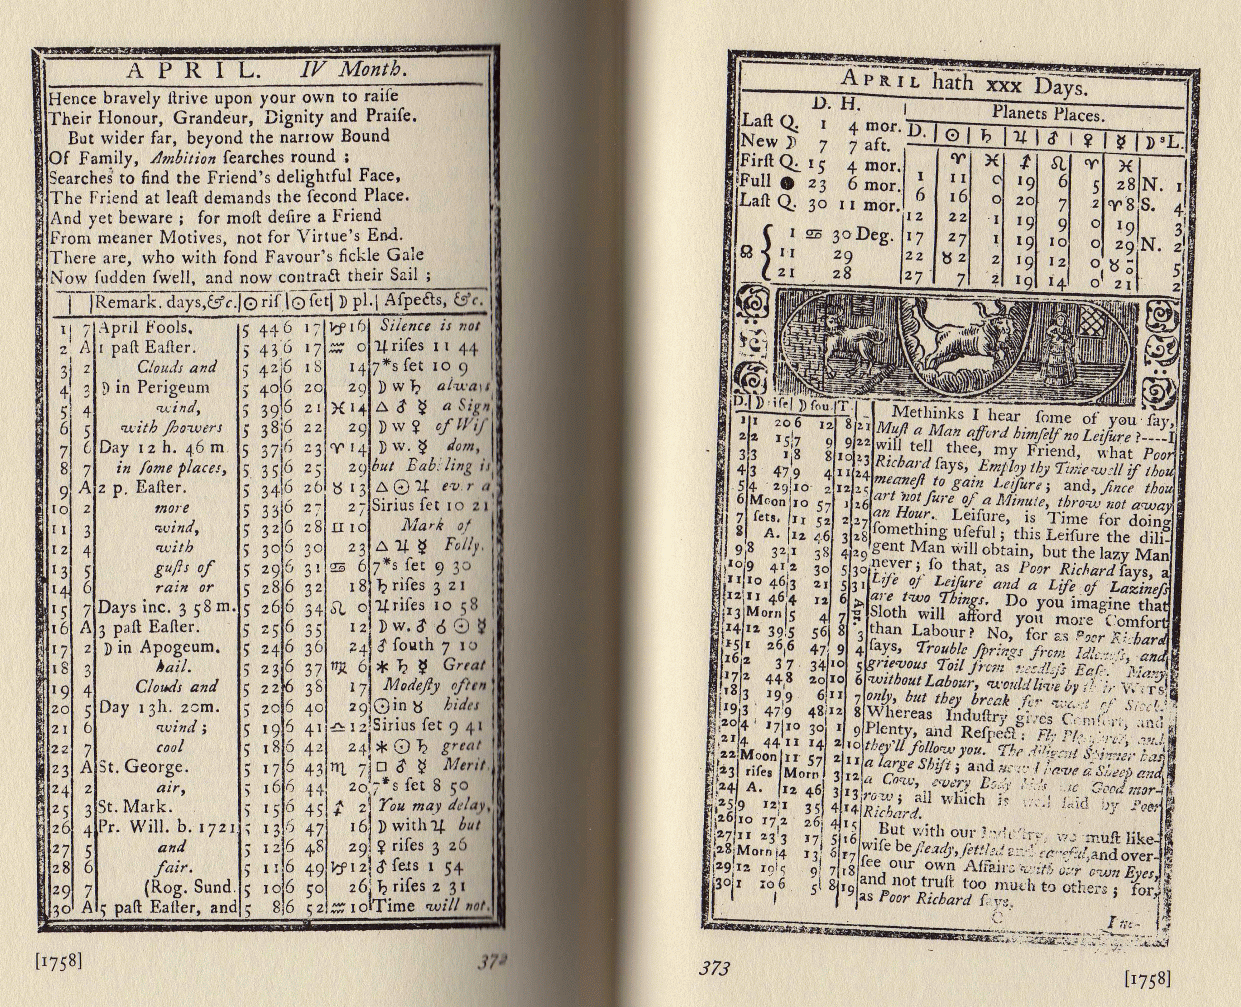 APRIL. IV Month.
Hence bravely ſtrive upon your own to raiſe
Their Honour, Grandeur, Dignity and Praiſe.
But wider far, beyond the narrow Bound
Of Family, Ambition ſearches round ;
Searches to find the Friend's delightful Face,
The Friend at leaſt demands the ſecond Place.
And yet beware ; for moſt deſire a Friend
From meaner Motives, not for Virtue's End.
There are, who with fond Favour's fickle Gale
Now ſudden ſwell, and now contract their Sail ;
Remark. days,&c. ☉ riſ ☉ ſet ☽ pl. Aſpects, &c.
1 7 April Fools. 5 44 6 17 ♑ 16 Silence is not
2 A 1 paſt Eaſter. 5 43 6 17 ♒ 0 ♃ riſes 11 44
3 2 Clouds and 5 42 6 18 14 7*s ſet 10 9
4 3 ☽ in Perigeum 5 40 6 20 29 ☽ w ♄ always
5 4 wind, 5 39 6 21 ♓ 14 △ ♂ ☿ a Sign
6 5 with ſhowers 5 38 6 22 29 ☽ w ♀ of Wiſ
7 6 Day 12 h. 46 m 5 37 6 23 ♈ 14 ☽ w. ☿ dom,
8 7 in ſome places, 5 35 6 25 29 but Babbling is
9 A 2 p. Eaſter. 5 34 6 26 ♉ 13 △ ☉ ♃ ever a
10 2 more 5 33 6 27 27 Sirius ſet 10 21
11 3 wind, 5 32 6 28 ♊ 10 Mark of
12 4 with 5 30 6 30 23 △ ♃ ☿ Folly.
13 5 guſts of 5 29 6 31 ♋ 6 7*s ſet 9 30
14 6 rain or 5 28 6 32 18 ♄ riſes 3 21
15 7 Days inc. 3 58 m. 5 26 6 34 ♌ 0 ♃ riſes 10 58
16 A 3 paſt Eaſter. 5 25 6 35 12 ☽ w. ♂ ☌ ☉ ☿
17 2 ☽ in Apogeum. 5 24 6 36 24 ♂ ſouth 7 10
18 3 hail. 5 23 6 37 ♍ 6 * ♄ ☿ Great
19 4 Clouds and 5 22 6 38 17 Modeſty often
20 5 Day 13h. 20m. 5 20 6 40 29 ☉ in ♉ hides
21 6 wind ; 5 19 6 41 ♎ 12 Sirius ſet 9 41
22 7 cool 5 18 6 42 24 * ☉ ♄ great
23 A St. George. 5 17 6 43 ♏ 7 □ ♂ ☿ Merit.
24 2 air, 5 16 6 44 20 7*s ſet 8 50
25 3 St. Mark. 5 15 6 45 ♐ 2 You may delay,
26 4 Pr. Will. b. 1721 5 13 6 47 16 ☽ with ♃ but
27 5 and 5 12 6 48 29 ♀ riſes 3 26
28 6 fair. 5 11 6 49 ♑ 12 ♂ ſets 1 54
29 7 (Rog. Sund. 5 10 6 50 26 ♄ riſes 2 31
30 A 5 paſt Eaſter, and 5 8 6 52 ♒ 10 Time will not.
[1758]
372
APRIL hath xxx Days.
D. H.
Laſt Q. 1 4 mor.
New ☽ 7 7 aft.
Firſt Q. 15 4 mor.
Full ● 23 6 mor.
Laſt Q. 30 11 mor.
☊ { 1 ♋ 30 Deg.
11 29
21 28
Planets Places.
D. ☉ ♄ ♃ ♂ ♀ ☿ ☽'sL.
♈ ♓ ♐ ♌ ♈ ♓
1 11 0 19 6 5 28 N. 1
6 16 0 20 7 2 ♈ 8 S. 4
12 22 1 19 9 0 19 3
17 27 1 19 10 0 29 N. 2
22 ♉ 2 2 19 12 0 ♉ 5
27 7 2 19 14 0 21 2
D. ☽ riſe ☽ ſou. T.
1 1 20 6 12 8 21
2 2 15 7 9 9 22
3 3 1 8 8 10 23
4 3 47 9 4 11 24
5 4 29 10 2 12 25
6 Moon 10 57 1 26
7 ſets. 11 52 2 27
8 A. 12 46 3 28
9 8 32 1 38 4 29
10 9 41 2 30 5 30
11 10 46 3 21 5 31
12 11 46 4 12 6 Apr.
13 Morn 5 4 7
14 12 39 5 56 8 3
15 1 26 6 47 9 4
16 2 3 7 34 10 5
17 2 44 8 20 10 6
18 3 19 9 6 11 7
19 3 47 9 48 12 8
20 4 17 10 30 1 9
21 4 44 11 14 2 10
22 Moon 11 57 2 11
23 riſes Morn 3 12
24 A. 12 46 3 13
25 9 12 1 35 4 14
26 10 17 2 26 4 15
27 11 23 3 17 5 16
28 Morn 4 13 6 17
29 12 19 5 9 7 18
30 1 10 6 5 8 19
Methinks I hear ſome of you ſay,
Muſt a Man afford himſelf no Leiſure ?----I
will tell thee, my Friend, what Poor
Richard ſays, Employ thy Time well if thou
meaneſt to gain Leiſure ; and, ſince thou
art not ſure of a Minute, throw not away
an Hour. Leiſure, is Time for doing
ſomething uſeful ; this Leiſure the dili-
gent Man will obtain, but the lazy Man
never ; ſo that, as Poor Richard ſays, a
Life of Leiſure and a Life of Lazineſs
are two Things. Do you imagine that
Sloth will afford you more Comfort
than Labour? No, for as Poor Richard
ſays, Trouble ſprings from Idleneſs, and
grievous Toil from needleſs Eaſe. Many
without Labour, would live by their WITS
only, but they break for want of Stock.
Whereas Induſtry gives Comfort, and
Plenty, and Reſpect : Fly Pleaſures, and
they'll follow you. The diligent Spinner has
a large Shift ; and now I have a Sheep and
a Cow, every Body bids me Good mor-
row ; all which is well ſaid by Poor
Richard.
But with our Induſtry, we muſt like-
wiſe be ſteady, ſettled and careful, and over-
ſee our own Affairs with our own Eyes,
and not truſt too much to others ; for,
as Poor Richard ſays,
373
[1758]